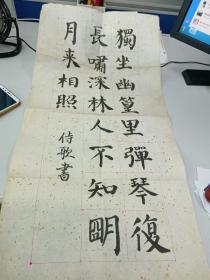 獨坐幽篁里彈琴復
長嘯深林人不知朙
月来相照
侍歌書